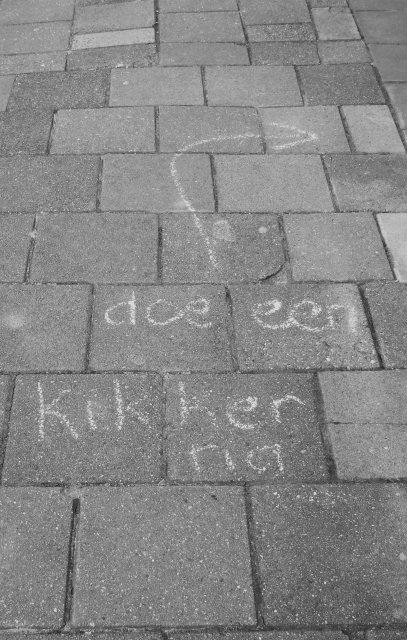 doe een
kikker
na